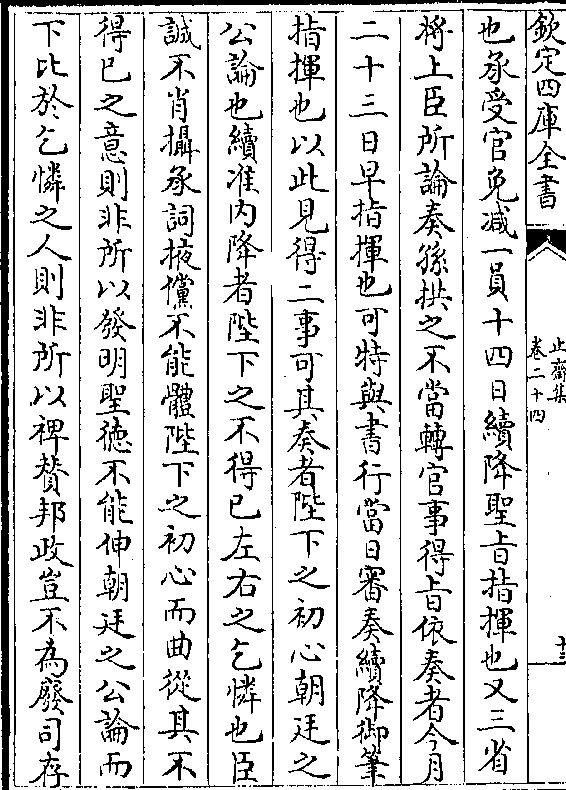 欽定四庫全書
止齋集
卷二十四
十三
也承受官免減一員十四日續降聖旨指揮也又三省
將上臣所論奏孫拱之不當轉官事得上旨依奏者今月
二十三日早指揮也可特與書行當日審奏續降御筆
指揮也以此見得二事可其奏者陛下之初心朝廷之
公論也續准内降者陛下之不得已左右之乞憐也臣
誠不肖攝承詞掖儻不能體陛下之初心而曲從其不
得已之意則非所以發明聖徳不能伸朝廷之公論而
下比於乞憐之人則非所以禆賛邦政豈不為廢司存